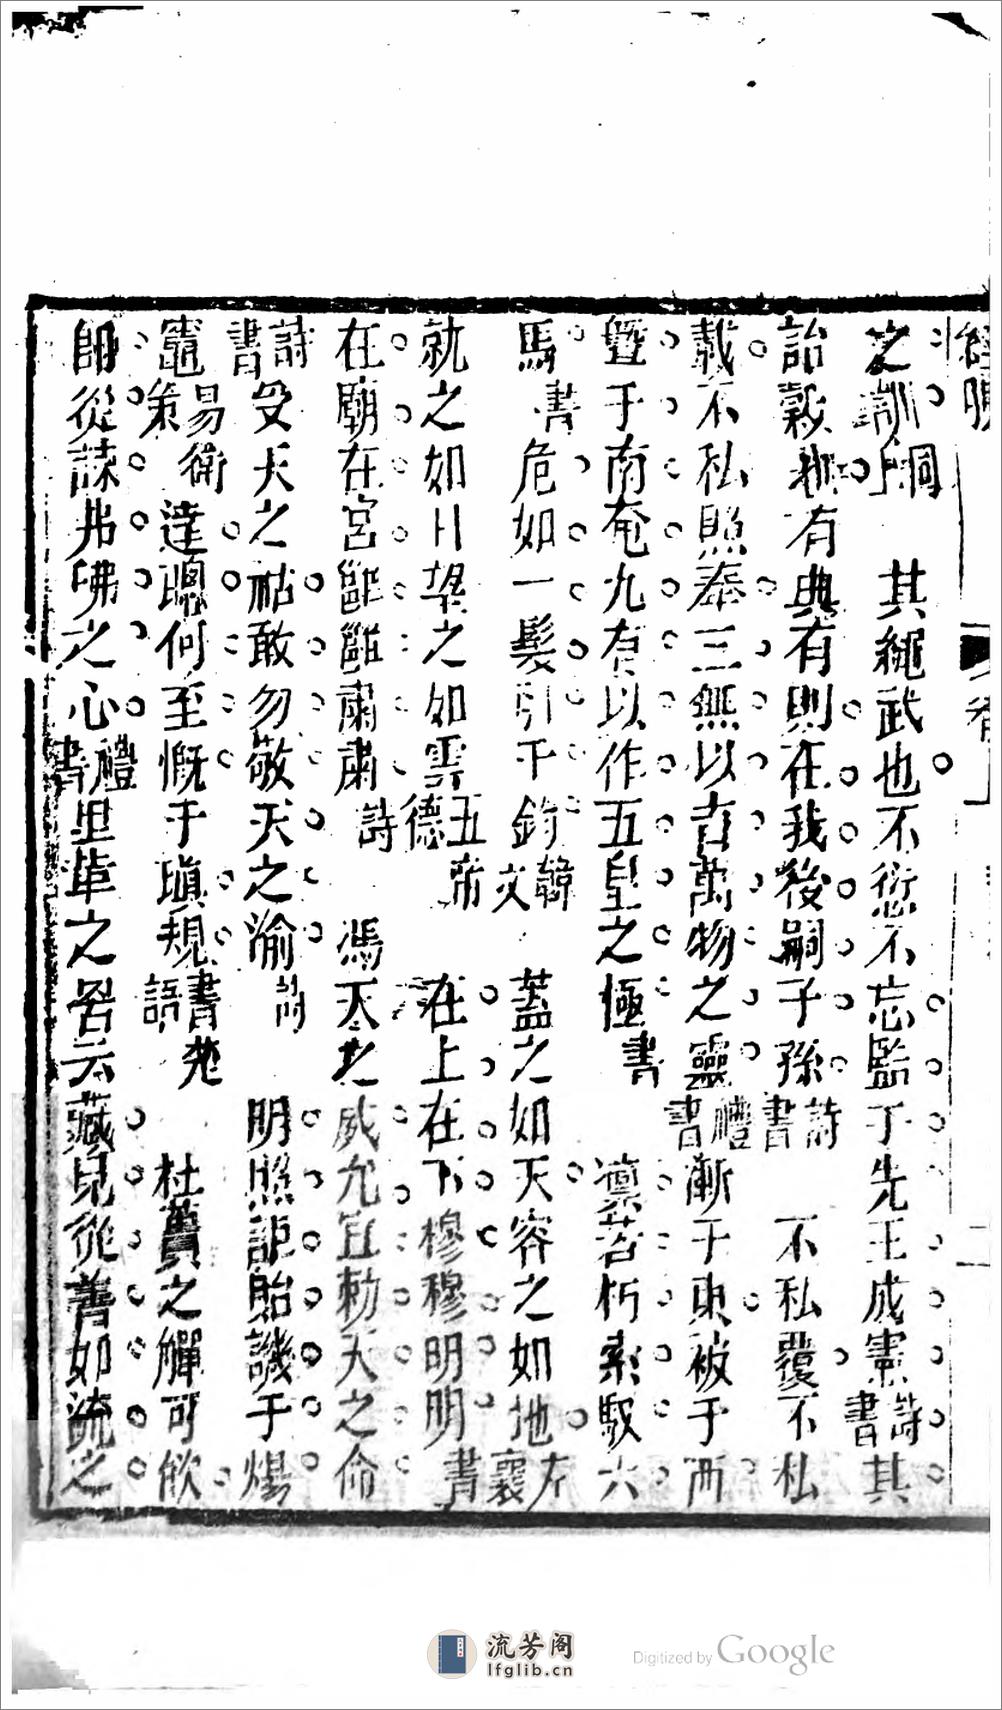 之訓 詩 其繩武也不愆不忘監于先王成憲詩書其
詒穀也有典有則在我後嗣子孫詩書 不私覆不私
載不私照奉三無以育萬物之靈禮書漸于東被于西
曁于南奄九有以作五皇之極書 凜若朽索馭六
馬書危如一髮引千鈞韓文 蓋之如天容之如地左襄
就之如日望之如雲五帝德 在上在下穆穆明明書
在廟在宮雝雝肅肅詩 馮天之威允宜勅天之命
詩書受天之祜敢勿敬天之渝詩 明照詎貽譏于煬
竈易衛策達聰何至慨于瑱規書楚語 杜蕢之觶可飲
師從諫弗咈之心禮書里革之罟云藏皃從善如流之
流芳阁
lfglib.cn
Digitized by Google